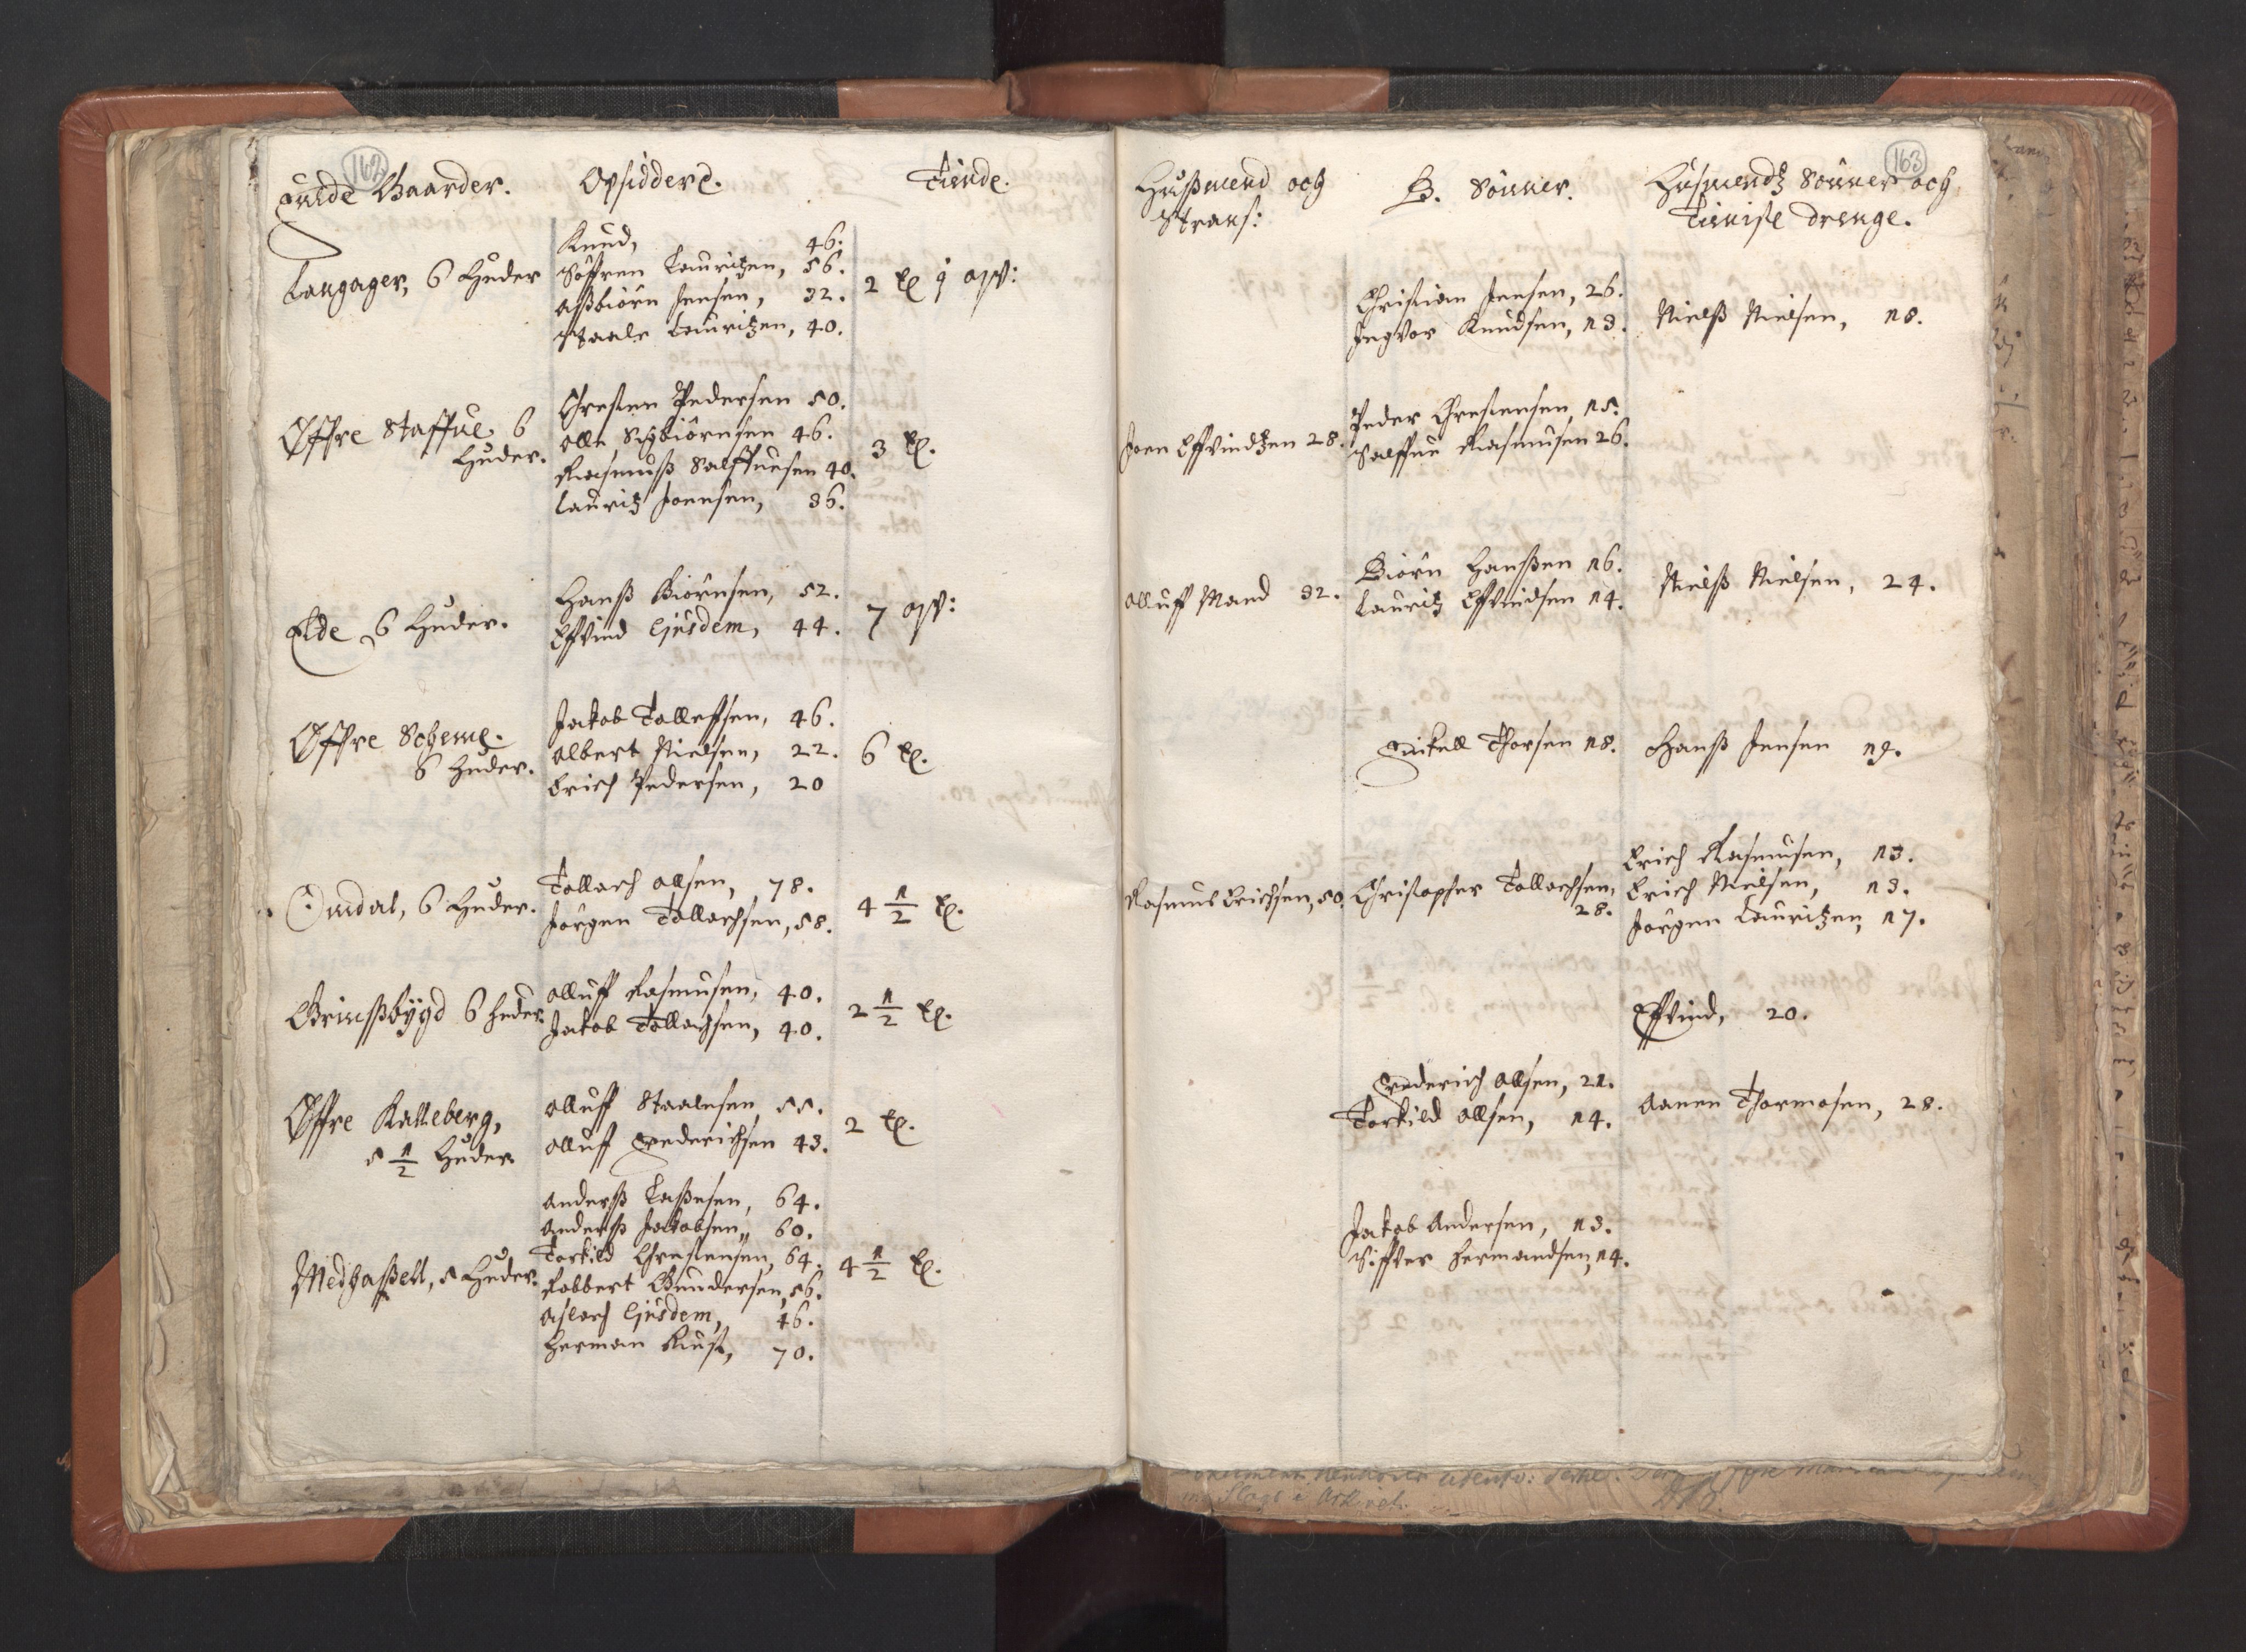 162
Fulde Gaarder. Opsiddere. Tiende.
Langager, 6 Huder
Knud, 46.
Söffren Lauritzen, 56.
Aßbiörn Jensen, 32.
Staale Lauritzen, 40.
2 j opβ:
Öffre Staffue, 6
Huder.
Chresten Pedersen 50.
Olle Asbiörnsen 46.
Rasmuß Salffuesen 40.
Lauritz Joensen, 36.
3
Elde 6 Huder.
Hanß Biörnsen, 52.
Effvind Ejusdem, 44.
7 opβ:
Öffre Scheme.
6 Huder.
Jakob Tolleffsen, 46.
Albert Nielsen, 22.
Erich Pedersen, 20
6
Omdal, 6 Huder.
Tollach Olsen, 78.
Jörgen Tollachsen, 58.
4 1/2
Grimßbÿgd 6 Huder.
Olluff Rasmusen, 40.
Jakob Tollachsen, 40.
2 1/2
Öffre Kalleberg,
5 1/2 Huder
Olluff Staalesen 55.
Olluff Frederichsen 43.
2
Medhaßell, 5 Huder.
Anderß Laßesen, 64.
Anderß Jakobsen, 60.
Torkild Chrestensen, 64.
Robbert Gundersen, 56.
Aslach Ejusdem, 46.
Herman Kusk, 70.
4 1/2
163
Hußmend och
Strans:
B. Sönner.
Husmendtz Sönner och
Tieniste Drenge.
Christian Jensen, 26.
Ingvor Knudsen, 13.
Nielß Nielsen, 18.
Joen Effvindtzen 28.
Peder Chrestensen, 15.
Salffue Rasmusen 26.
Olluff Mand 32.
Biörn Hanßen 16.
Lauritz Effvindsen 14.
Nielß Nielsen, 24.
Eickell Thorsen 18.
Hanß Jensen 19.
Rasmus Erichsen, 50.
Christopher Tollachsen,
28.
Erich Rasmusen, 13.
Erich Nielsen, 13.
Jörgen Lauritzen, 17.
Effvind, 20.
Frederich Olsen, 21.
Torkild Olsen, 14.
Aanen Thormosen, 28.
Jakob Andersen, 13.
Siffver Hermandsen, 14.